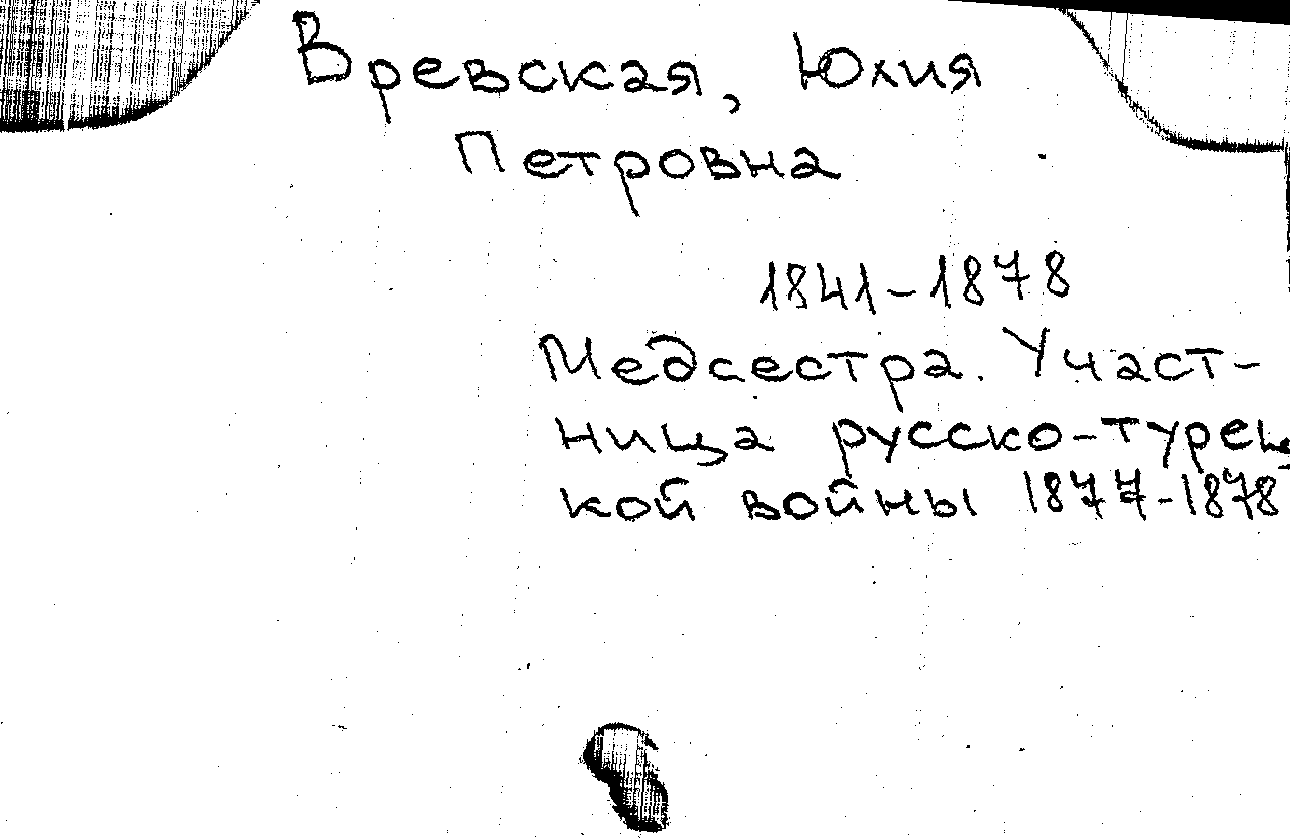 Вревская, Юлия
Петровна
1841-1878
Медсестра. Участ-
ница русско-турец
кой войны 1877-1878